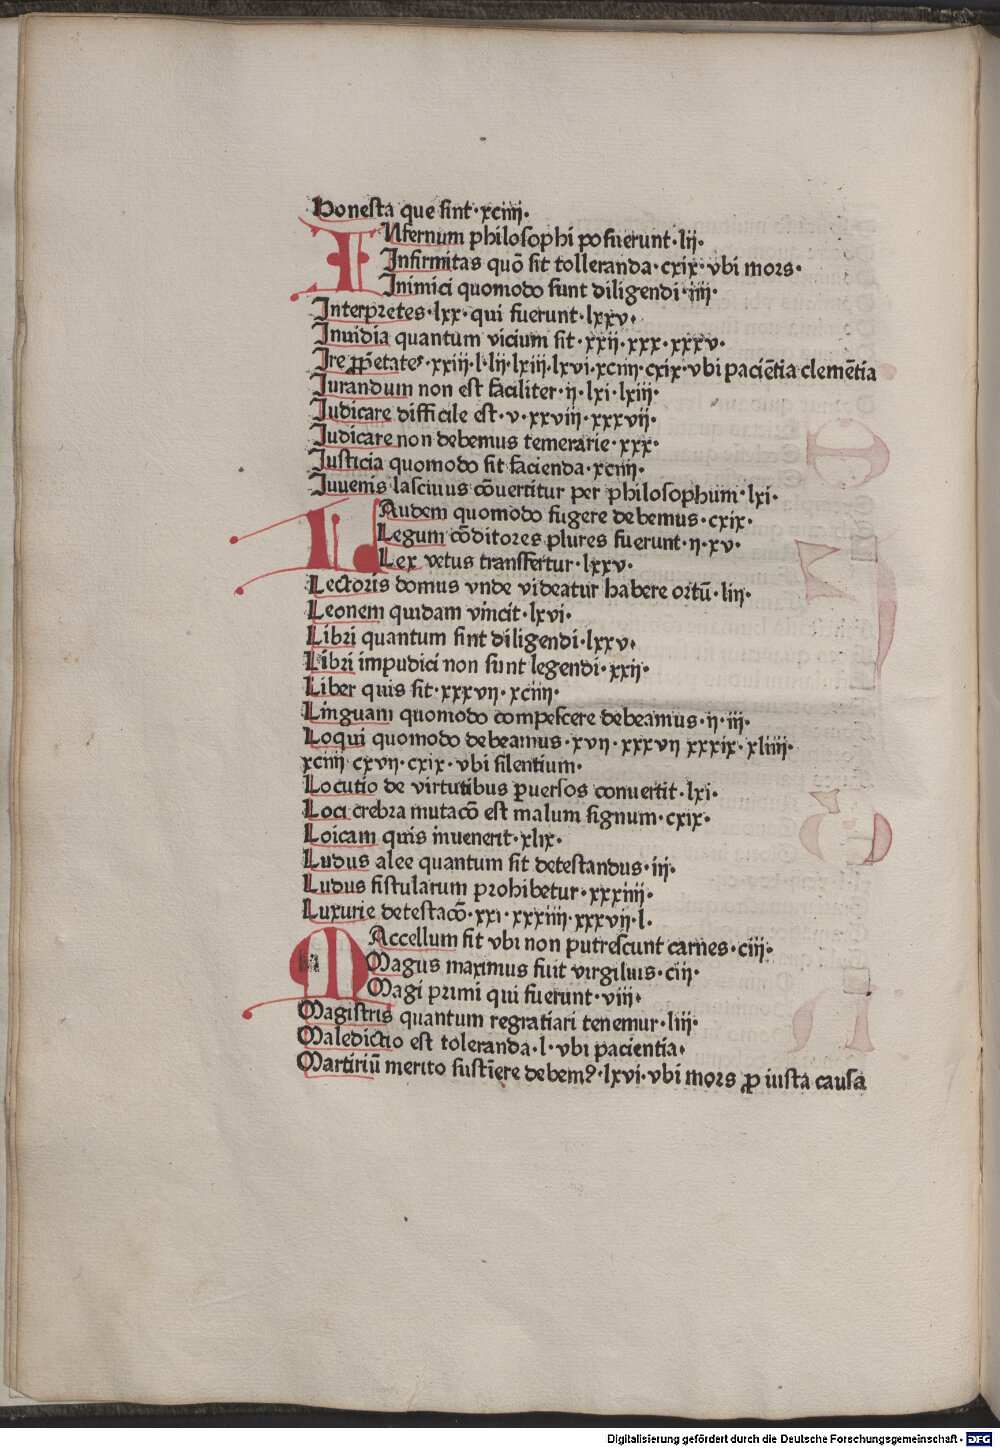 Honesta que sint·xciiij·
INfernum philosophi posuerunt·lij·
Infirmitas quō sit tolleranda·cxix·vbi mors·
Inimici quomodo sunt diligendi·iiij·
Interpretes·lxx·qui fuerunt·lxxv·
Inuidia quantum vicium sit·xxij·xxx·xxxv·
Ire ꝓp̄etates·xxiij·l·lij·lxiij·lxvi·xciiij·cxix·vbi pacie̅tia cleme̅tia
Iurandum non est faciliter·ij·lxi·lxiij·
Iudicare difficile est·v·xxviij·xxxvij·
Iudicare non debemus temerarie·xxx·
Iusticia quomodo sit facienda·xciiij·
Iuuenis lasciuus cōuertitur per philosophum·lxi·
LAudem quomodo fugere debemus·cxix·
Legum cōditores plures fuerunt·ij·xv·
Lex vetus transfertur·lxxv·
Lectoris domus vnde videatur habere ortū·liij·
Leonem quidam vincit·lxvi·
Libri quantum sint diligendi·lxxv·
Libri impudici non sunt legendi·xxij·
Liber quis sit·xxxvij·xciiij·
Linguam quomodo compescere debeamus·ij·iij·
Loqui quomodo debeamus·xvij·xxxvij xxxix·xliiij·
xciiij cxvij·cxix·vbi silentium·
Locutio de virtutibus ꝑuersos conuertit·lxi·
Loci crebra mutacō est malum signum·cxix·
Loicam quis inuenerit·xlix·
Ludus alee quantum sit detestandus·iij·
Ludus fistularum prohibetur·xxxiiij·
Luxurie detestacō·xxi·xxxiiij·xxxvij·l·
MAccellum sit vbi non putrescunt carnes·ciij·
Magus maximus fuit virgilius·ciij·
Magi primi qui fuerunt·viij·
Magistris quantum regratiari tenemur·liij·
Maledictio est toleranda·l·vbi pacientia·
Martiriū merito sustīere debemꝰ·lxvi·vbi mors ꝓ iusta causa
Digitalisierung gefördert durch die Deutsche Forschungsgemeinschaft - DFG